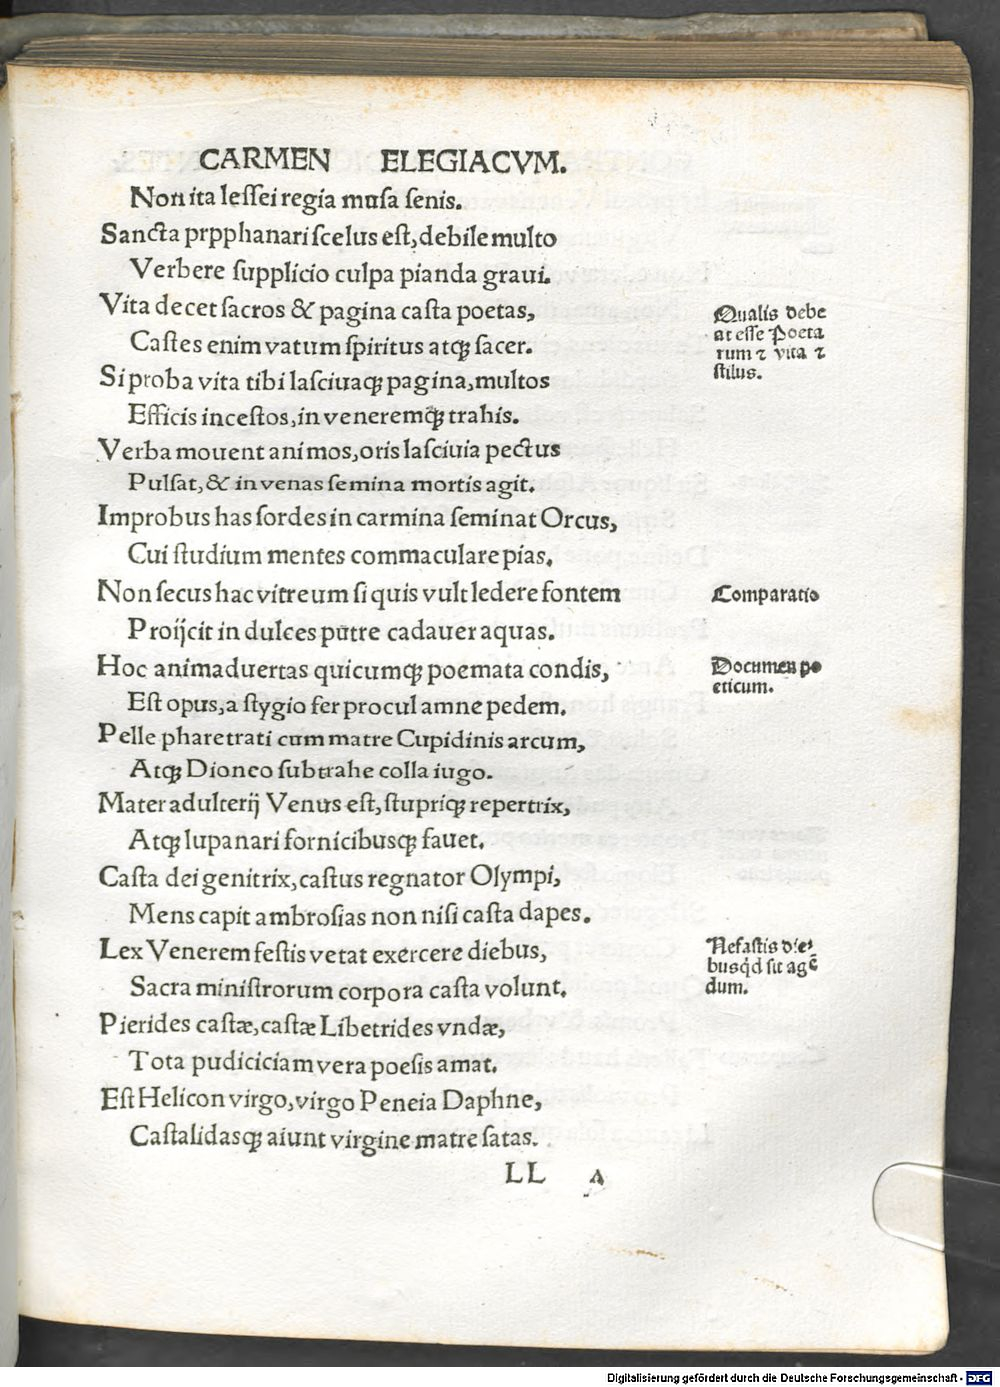 CARMEN ELEGIACVM.
Non ita lessei regia musa senis.
Sancta prpphanari scelus est, debile multo
Verbere supplicio culpa pianda graui.
Vita decet sacros & pagina casta poetas,
Castes enim vatum spiritus atqȝ sacer.
Si proba vita tibi lasciuaqȝ pagina, multos
Efficis incestos, in veneremqȝ trahis.
Verba mouent animos, oris lasciuia pectus
Pulsat, & in venas semina mortis agit.
Improbus has sordes in carmina seminat Orcus,
Cui studium mentes commaculare pias.
Non secus hac vitreum si quis vult ledere fontem
Proijcit in dulces putre cadauer aquas.
Hoc animaduertas quicumqȝ poemata condis,
Est opus, a stygio fer procul amne pedem.
Pelle pharetrati cum matre Cupidinis arcum,
Atqȝ Dioneo subtrahe colla iugo.
Mater adulterij Venus est, stupriqȝ repertrix,
Atqȝ lupanari fornicibusqȝ fauet.
Casta dei genitrix, castus regnator Olympi,
Mens capit ambrosias non nisi casta dapes.
Lex Venerem festis vetat exercere diebus,
Sacra ministrorum corpora casta volunt.
Pierides castæ, castæ Libetrides vndæ,
Tota pudiciciam vera poesis amat.
Est Helicon virgo, virgo Peneia Daphne,
Castalidasqȝ aiunt virgine matre satas.
LL A
Qualis debe
at esse Poeta
rum ⁊ vita ⁊
stilus.
Comparatio
Documen po
eticum.
Nefastis die
busqd sit agē
dum.
Digitalisierung gefördert durch die Deutsche Forschungsgemeinschaft - DFG